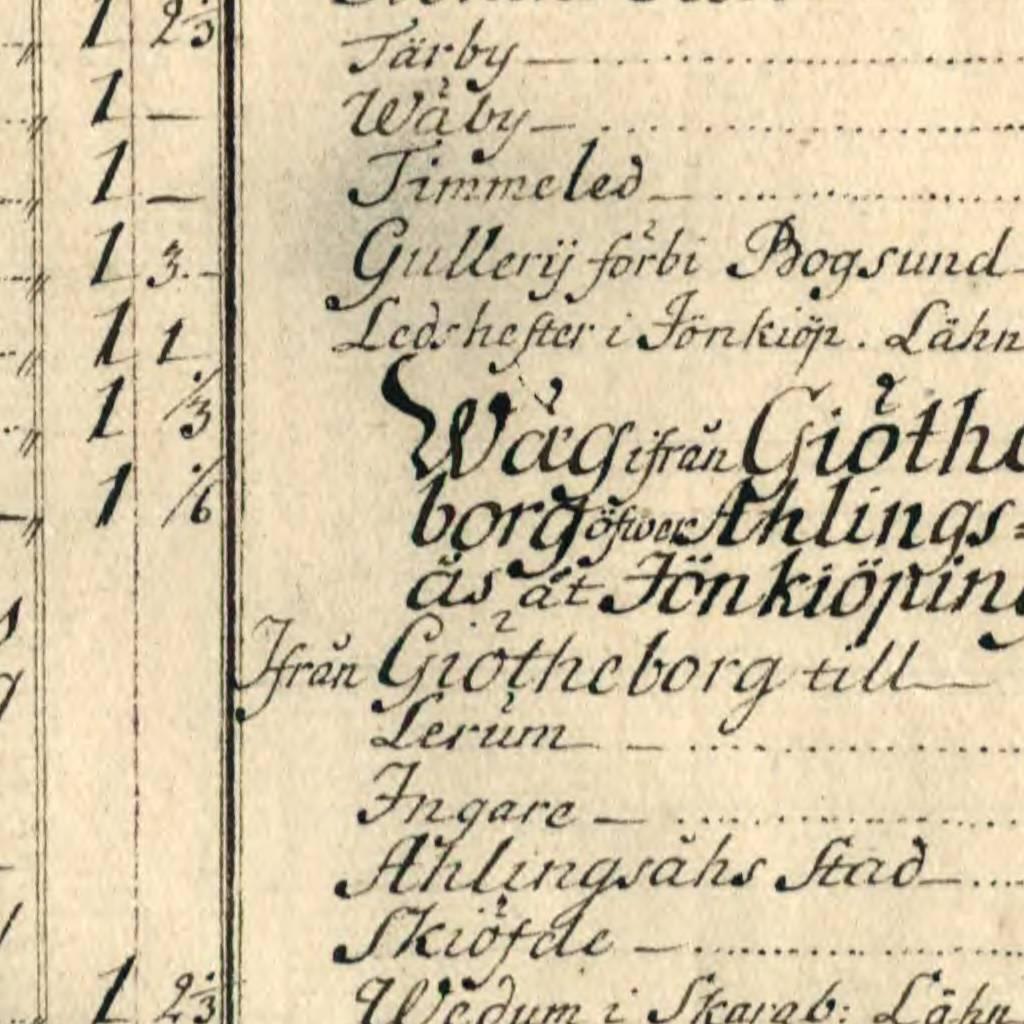 1 2⅔
1 —
1 —
1 3.
1 1
1 ⅓
1 ⅙
1 2⅔
Tärby
Wåby
Timmeled
Gullerÿ förbi Bogsund
Ledshester i Jönkiöp. Lähn
Wäg ifrån Giöthe
borg öfwer Ahlings=
ås åt Jönkiöping
Ifrån Giötheborg till
Lerum
Ingare
Ahlingsåhs Stad
Skiöfde
Wedum i Skarab: Lähn